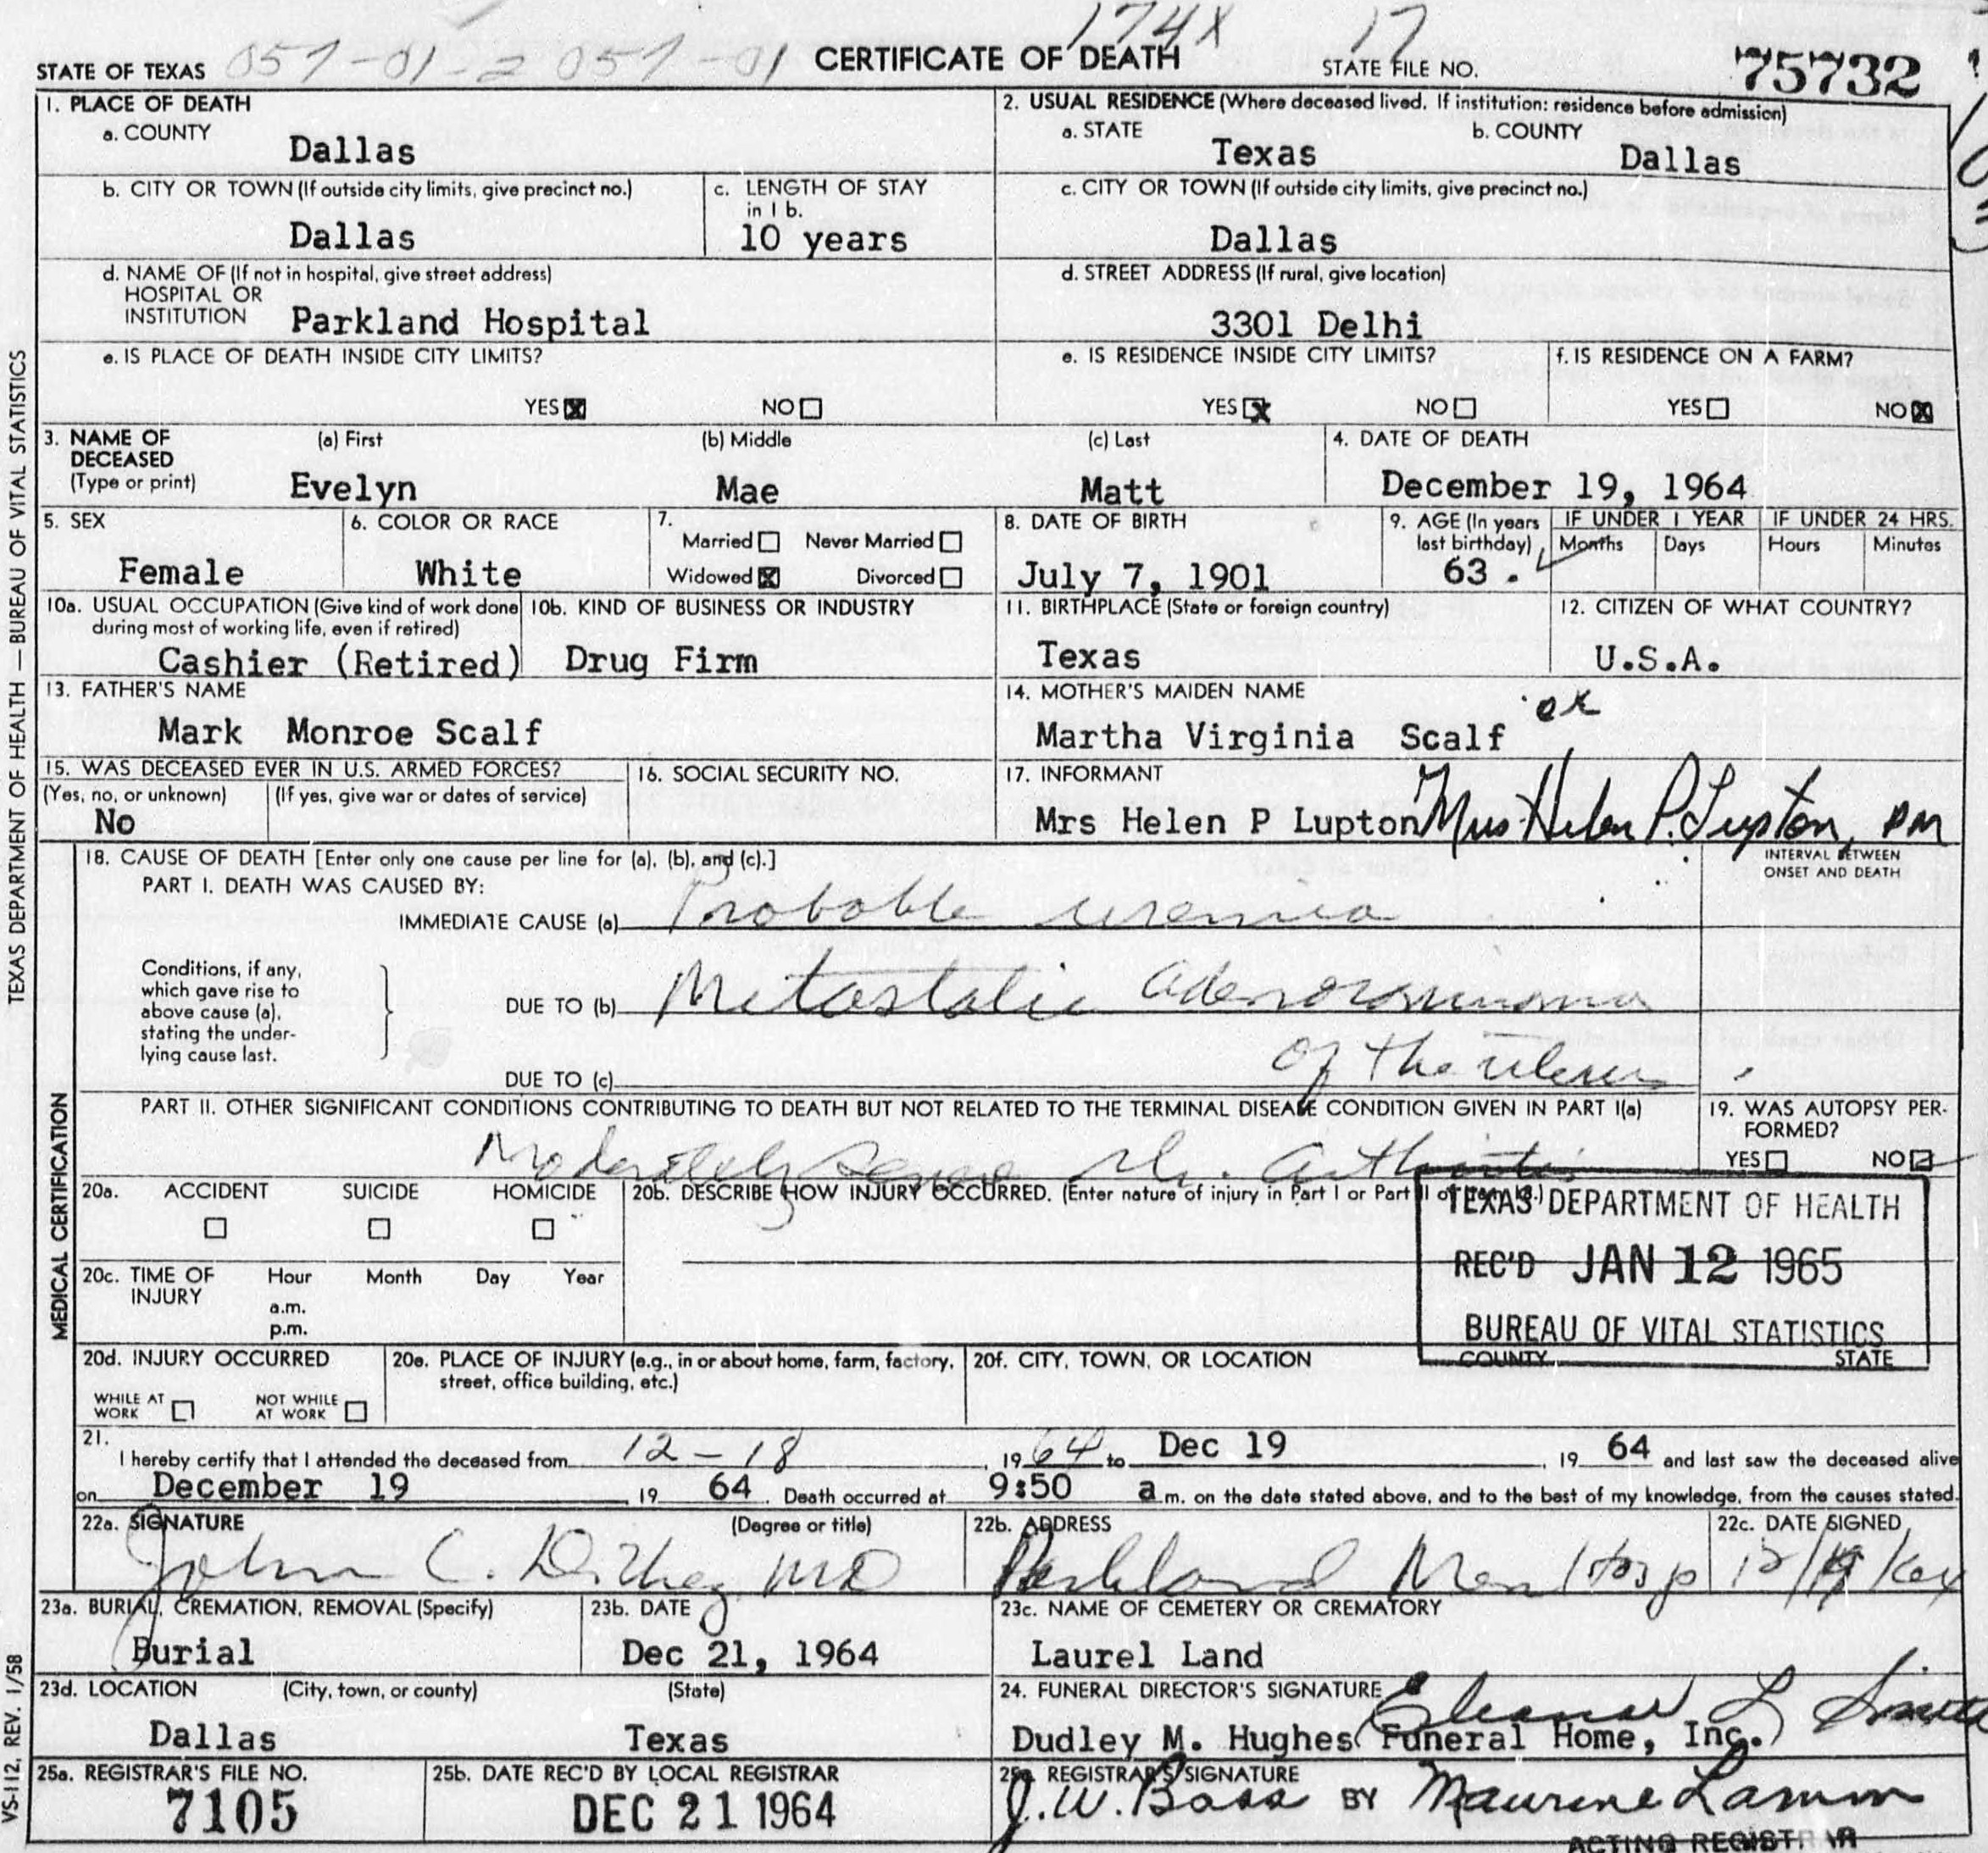 174X 17
STATE OF TEXAS 057-01-2 057-01 CERTIFICATE OF DEATH STATE FILE NO. 75732
1. PLACE OF DEATH
a. COUNTY
Dallas
2. USUAL RESIDENCE (Where deceased lived. If institution: residence before admission)
a. STATE b. COUNTY
Texas Dallas
b. CITY OR TOWN (If outside city limits, give precinct no.)
Dallas
c. LENGTH OF STAY
in 1 b.
10 years
c. CITY OR TOWN (If outside city limits, give precinct no.)
Dallas
d. NAME OF (If not in hospital, give street address)
HOSPITAL OR
INSTITUTION Parkland Hospital
d. STREET ADDRESS (If rural, give location)
3301 Delhi
e. IS PLACE OF DEATH INSIDE CITY LIMITS?
YES X NO
e. IS RESIDENCE INSIDE CITY LIMITS?
YES X NO
f. IS RESIDENCE ON A FARM?
YES NO X
3. NAME OF DECEASED
(Type or print)
(a) First (b) Middle (c) Last
Evelyn Mae Matt
4. DATE OF DEATH
December 19, 1964
5. SEX
Female
6. COLOR OR RACE
White
7.
Married Never Married
Widowed X Divorced
8. DATE OF BIRTH
July 7, 1901
9. AGE (In years
last birthday)
63.
IF UNDER 1 YEAR IF UNDER 24 HRS.
Months Days Hours Minutes
10a. USUAL OCCUPATION (Give kind of work done
during most of working life, even if retired)
Cashier (Retired)
10b. KIND OF BUSINESS OR INDUSTRY
Drug Firm
11. BIRTHPLACE (State or foreign country)
Texas
12. CITIZEN OF WHAT COUNTRY?
U.S.A.
13. FATHER'S NAME
Mark Monroe Scalf
14. MOTHER'S MAIDEN NAME
Martha Virginia Scalf ok
15. WAS DECEASED EVER IN U.S. ARMED FORCES?
(Yes, no, or unknown) (If yes, give war or dates of service)
No
16. SOCIAL SECURITY NO.
17. INFORMANT
Mrs Helen P Lupton Mrs Helen P. Lupton, DM
18. CAUSE OF DEATH [Enter only one cause per line for (a), (b), and (c).]
PART I. DEATH WAS CAUSED BY:
IMMEDIATE CAUSE (a) Probable uremia
INTERVAL BETWEEN
ONSET AND DEATH
Conditions, if any,
which gave rise to
above cause (a),
stating the under-
lying cause last.
DUE TO (b) Metastatic adenocarcinoma
of the uterus
DUE TO (c)
PART II. OTHER SIGNIFICANT CONDITIONS CONTRIBUTING TO DEATH BUT NOT RELATED TO THE TERMINAL DISEASE CONDITION GIVEN IN PART I(a)
Moderately Severe Rh. Arthritis
19. WAS AUTOPSY PER-
FORMED?
YES NO
20a. ACCIDENT SUICIDE HOMICIDE
20b. DESCRIBE HOW INJURY OCCURRED. (Enter nature of injury in Part I or Part II of item 18.)
TEXAS DEPARTMENT OF HEALTH
REC'D JAN 12 1965
BUREAU OF VITAL STATISTICS
20c. TIME OF INJURY Hour Month Day Year
a.m.
p.m.
20d. INJURY OCCURRED
WHILE AT WORK NOT WHILE AT WORK
20e. PLACE OF INJURY (e.g., in or about home, farm, factory,
street, office building, etc.)
20f. CITY, TOWN, OR LOCATION COUNTY STATE
21.
I hereby certify that I attended the deceased from 12-18, 19 64 to Dec 19, 19 64 and last saw the deceased alive
on December 19, 19 64. Death occurred at 9:50 a.m. on the date stated above, and to the best of my knowledge, from the causes stated.
22a. SIGNATURE (Degree or title)
John C. MD
22b. ADDRESS
Parkland Mem Hosp
22c. DATE SIGNED
12/19/64
23a. BURIAL, CREMATION, REMOVAL (Specify)
Burial
23b. DATE
Dec 21, 1964
23c. NAME OF CEMETERY OR CREMATORY
Laurel Land
23d. LOCATION (City, town, or county) (State)
Dallas Texas
24. FUNERAL DIRECTOR'S SIGNATURE Eleanor L Smith
Dudley M. Hughes Funeral Home, Inc.
25a. REGISTRAR'S FILE NO.
7105
25b. DATE REC'D BY LOCAL REGISTRAR
DEC 21 1964
25c. REGISTRAR'S SIGNATURE
J.W. Bass BY Maurine Lamm
ACTING REGISTRAR
TEXAS DEPARTMENT OF HEALTH — BUREAU OF VITAL STATISTICS
MEDICAL CERTIFICATION
VS-112, REV. 1/58